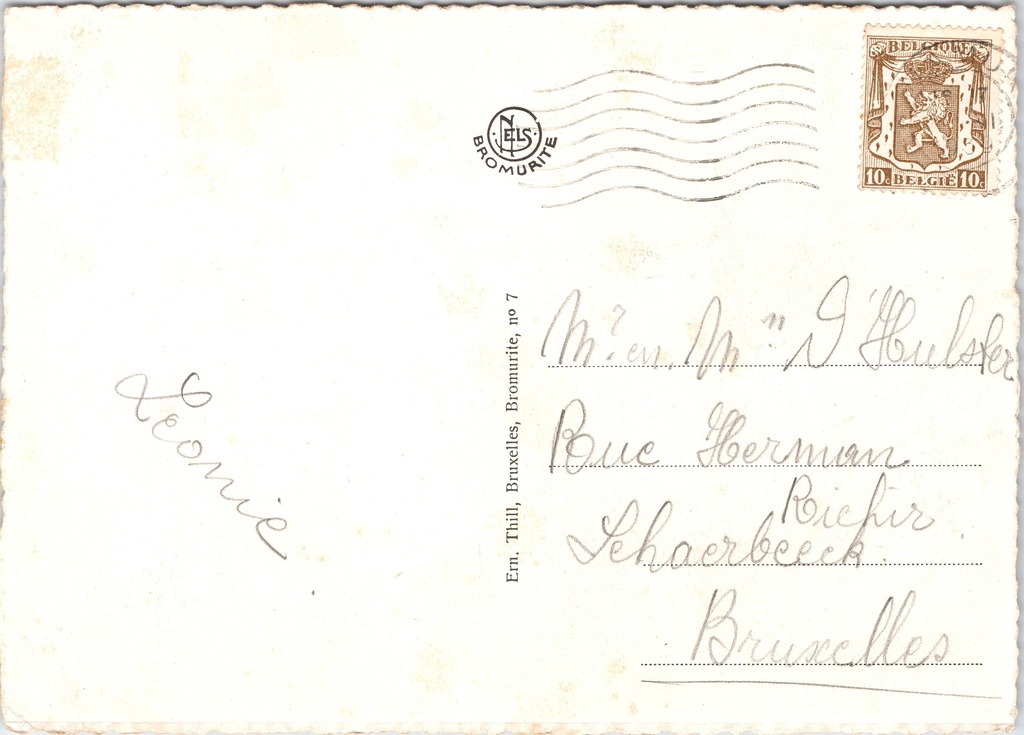 NELS
BROMURITE
BELGIQUE
10c BELGIË 10c
Ern. Thill, Bruxelles, Bromurite, nº 7
Leonie
Mr. en. Mm D'Hulster
Rue Herman
Richir
Schaerbeeck
Bruxelles